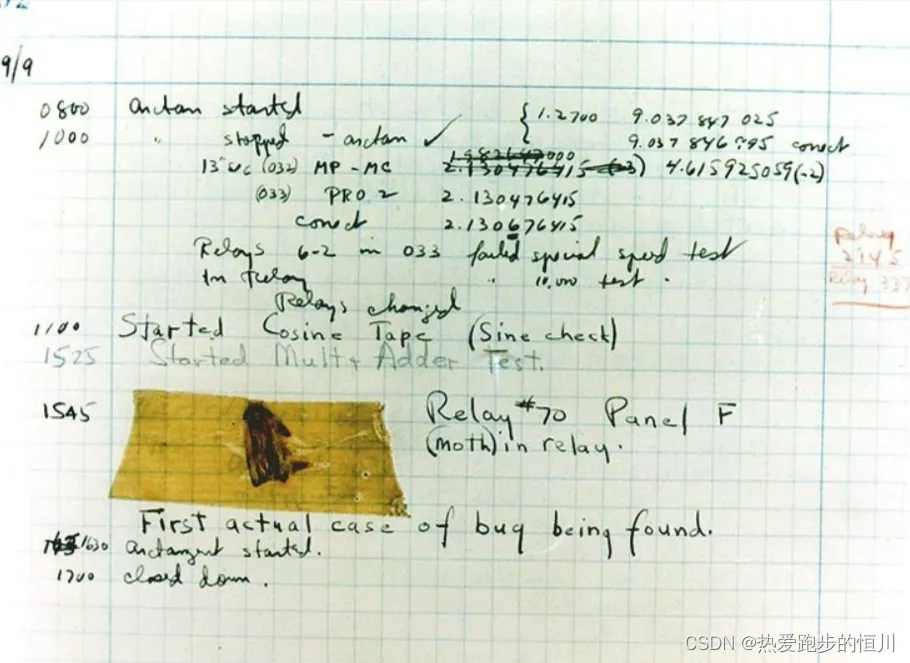 9/9
0800 arctan started { 1.2700 9.037 847 025
1000 " stopped - arctan ✓ 9.037 846 995 conect
13"uc (032) MP - MC 2.130476415 4.615925059(-2)
(033) PRO 2 2.130476415
conect 2.130676415
Relays 6-2 in 033 failed special speed test
In Relay " 10,000 test .
Relays changed
Relay
2145
Relay 337
1100 Started Cosine Tape (Sine check)
1525 Started Mult + Adder Test.
1545 Relay #70 Panel F
(moth) in relay.
First actual case of bug being found.
1630 arctangent started.
1700 closed down.
CSDN @热爱跑步的恒川